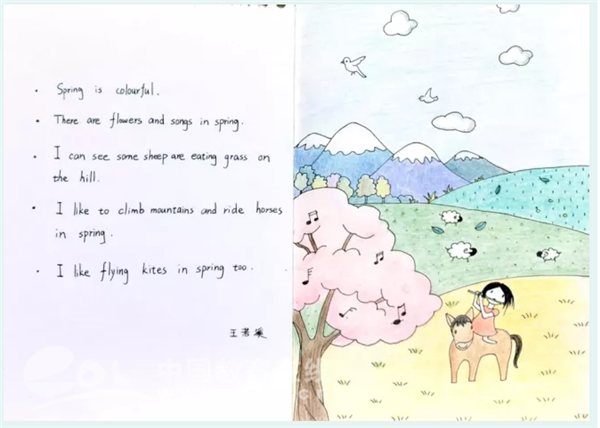 · Spring is colourful.
· There are flowers and songs in spring.
· I can see some sheep are eating grass on
the hill.
· I like to climb mountains and ride horses
in spring.
· I like flying kites in spring too.
王若